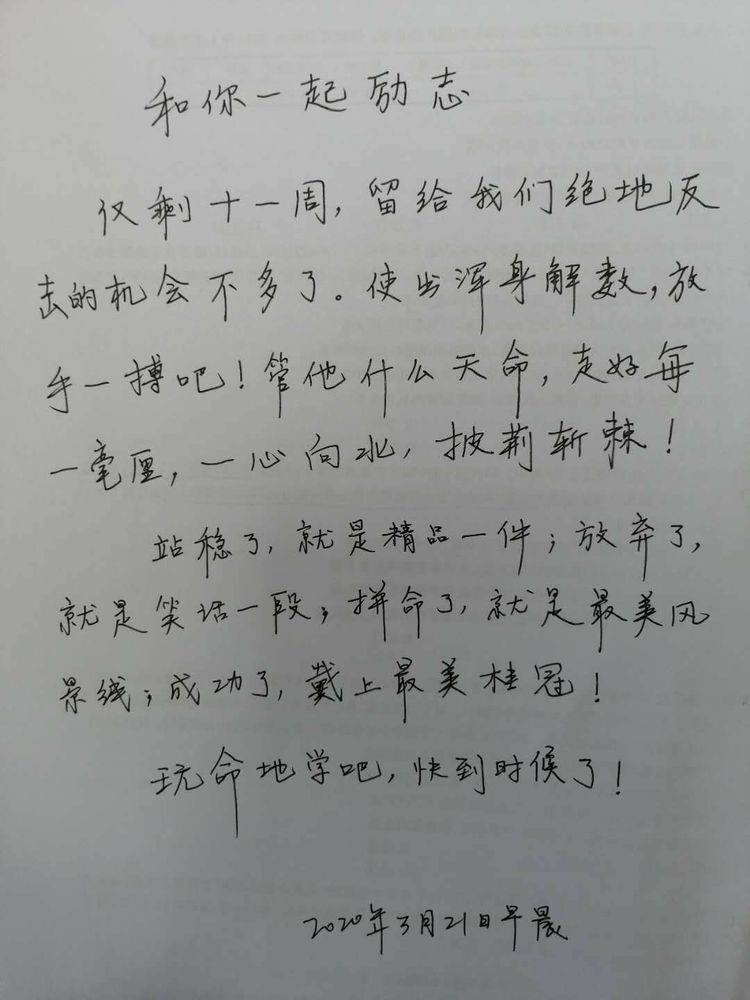 和你一起励志
仅剩十一周，留给我们绝地反
击的机会不多了。使出浑身解数，放
手一搏吧！管他什么天命，走好每
一毫厘，一心向北，披荆斩棘！
站稳了，就是精品一件；放弃了，
就是笑话一段；拼命了，就是最美风
景线；成功了，戴上最美桂冠！
玩命地学吧，快到时候了！
2020年3月21日早晨